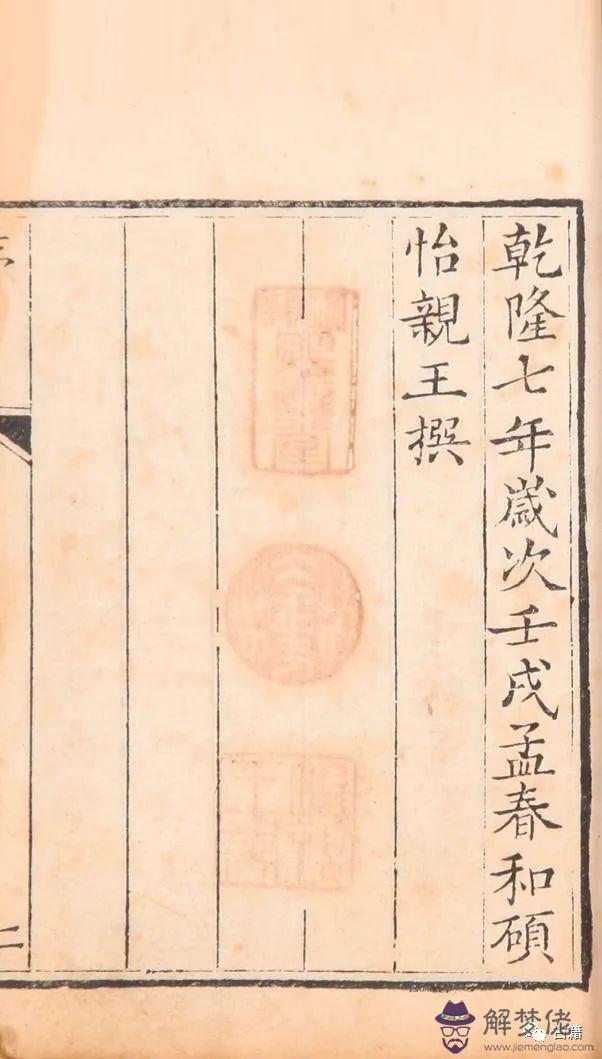 乾隆七年歲次壬戌孟春和碩
怡親王撰
二
解梦佬
www.jiemenglao.com
古籍